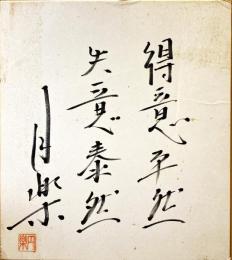 得意平然
失意泰然
月樂